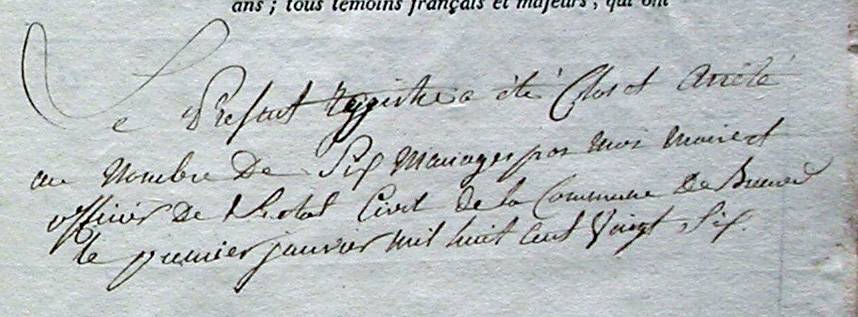 ans ; tous témoins français et majeurs, qui ont
Le Present registre a été Clos et Arrêté
au Nombre De Six Mariages par moi Maire et
officier De l'Etat Civil de la Commune De
le premier janvier mil huit cent Vingt Six.